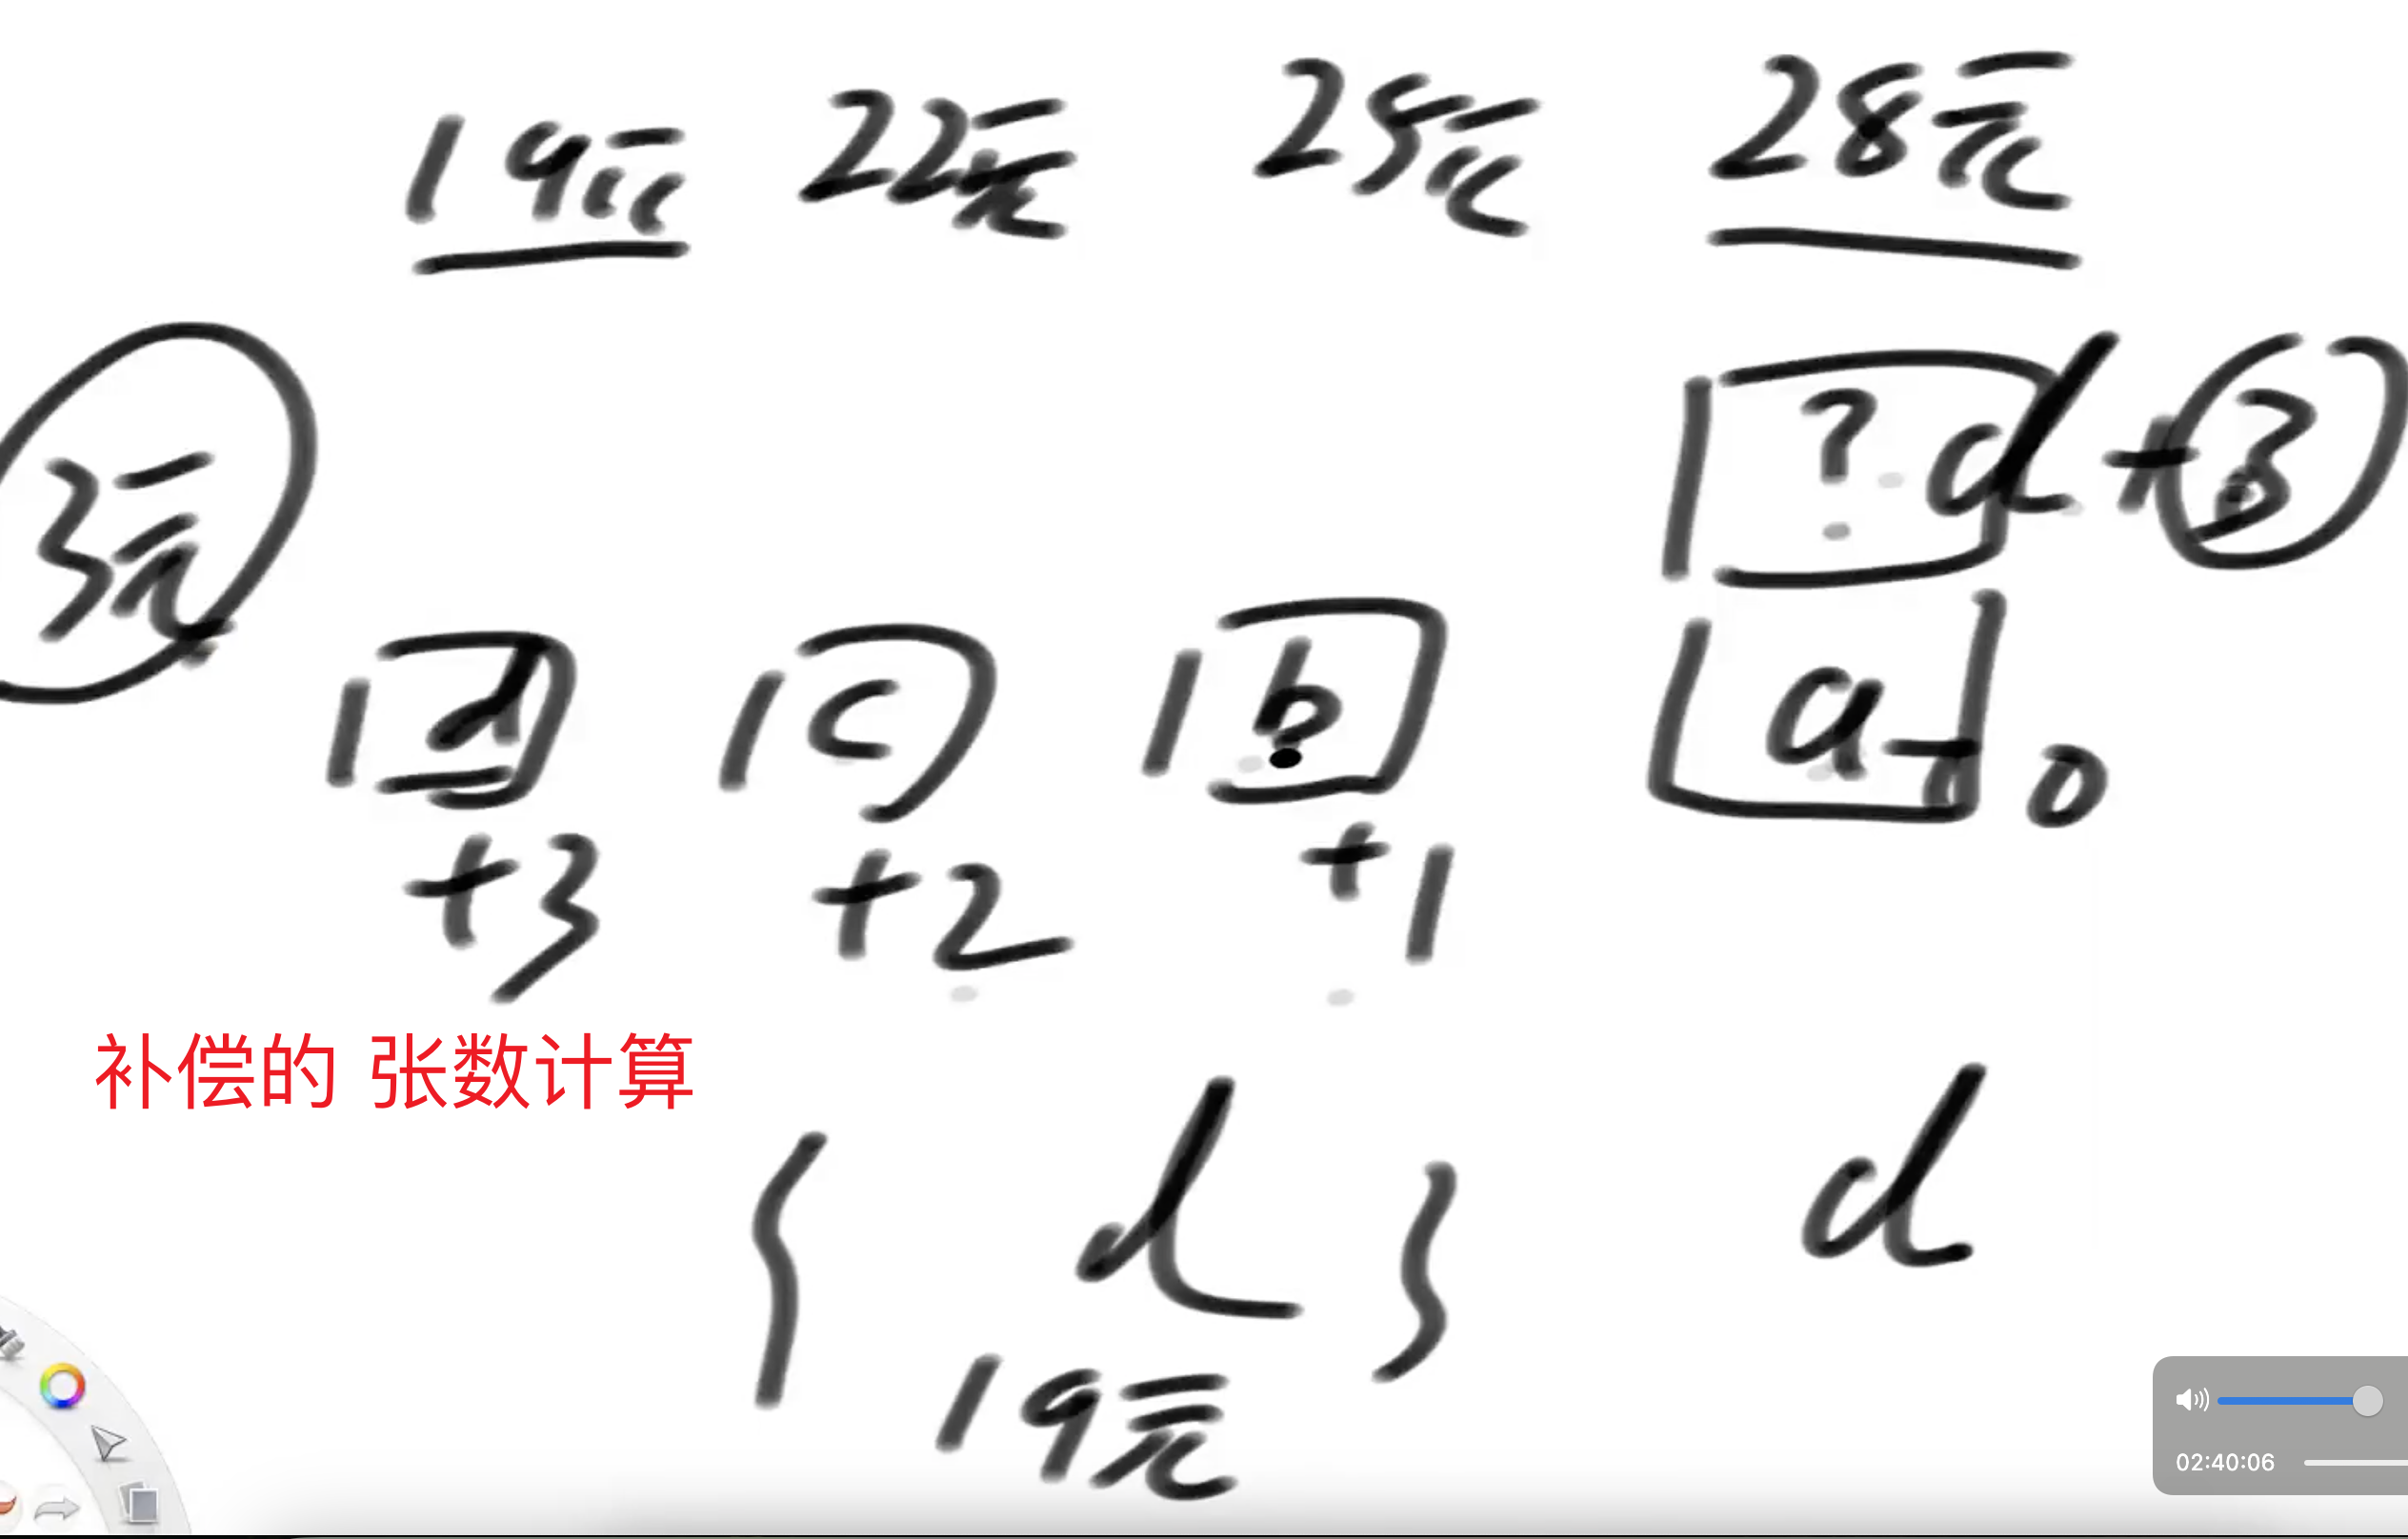 19元 22元 25元 28元
3元
? d+3
d c b a+0
+3 +2 +1
补偿的 张数计算
{ d } d
19元
02:40:06